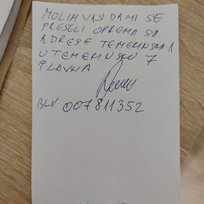 MOLIM VAS DA MI SE
PRESELI OPREMA SA
ADRESE TEMERINSKA
U TEMERINSKU 7
PLAVNA
BLK 007811352